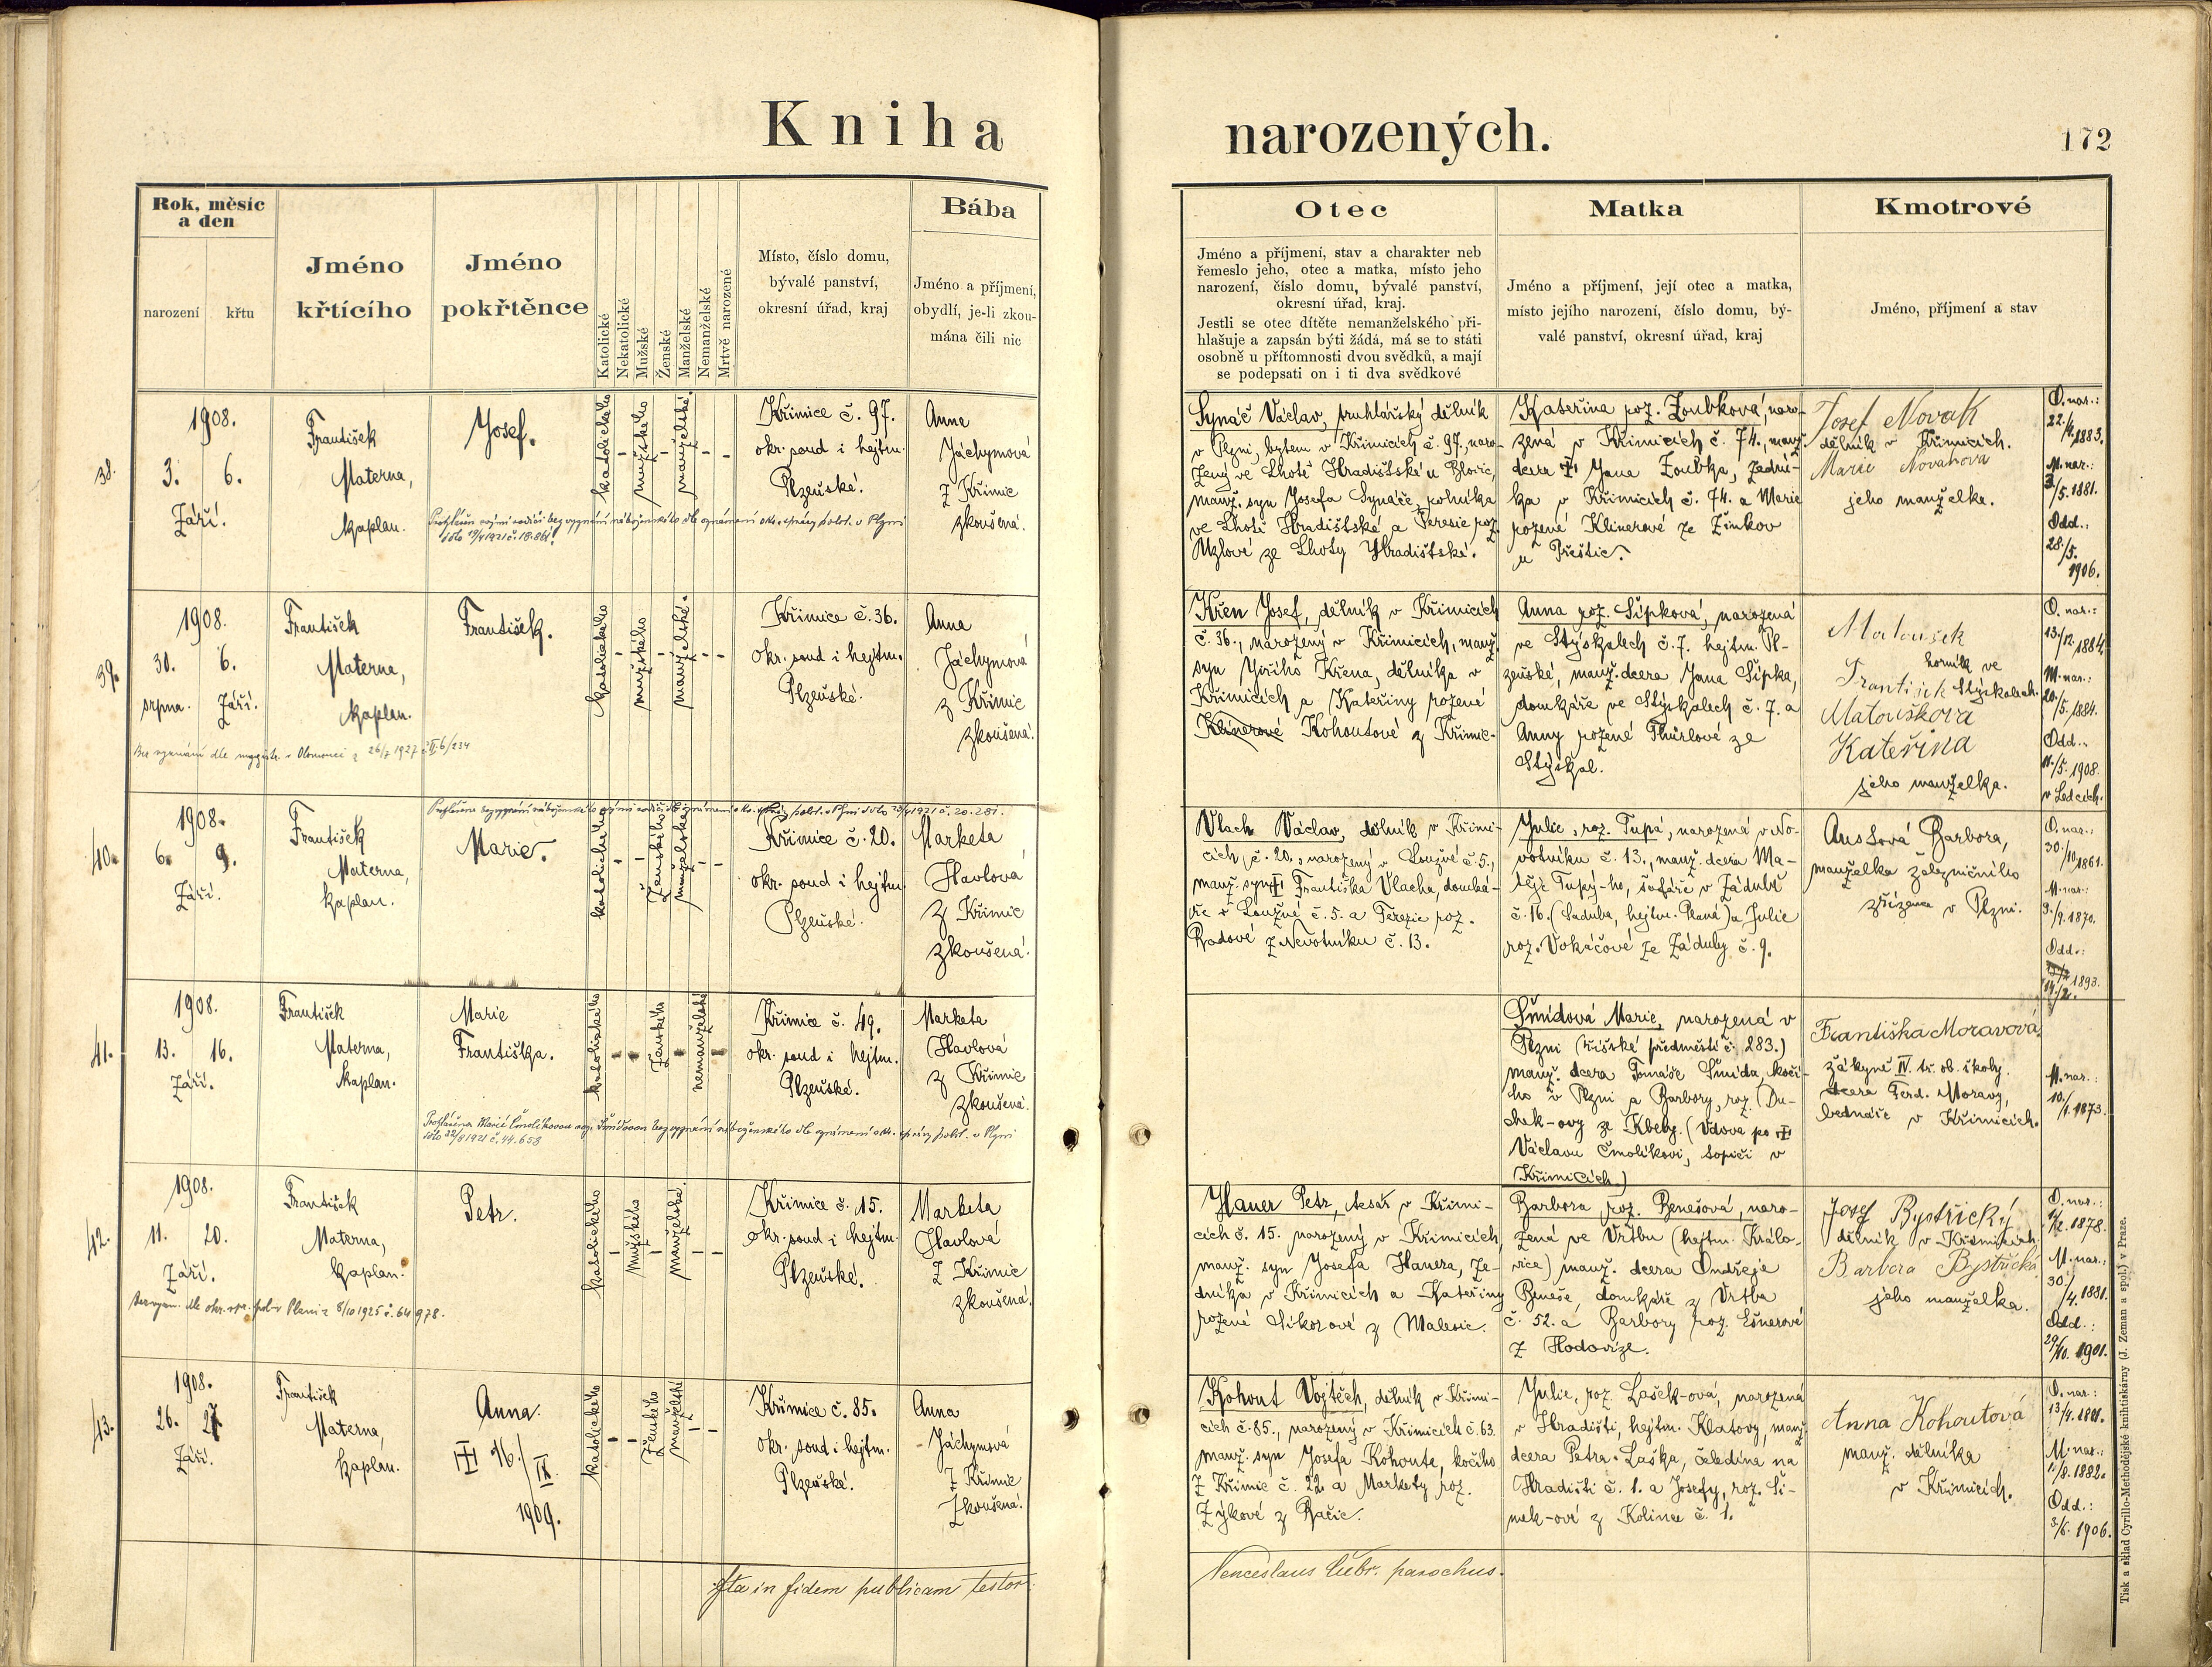 Kniha narozených.
172
Rok, měsíc
a den
narození
křtu
Jméno
křtícího
Jméno
pokřtěnce
Katolické
Nekatolické
Mužské
Ženské
Manželské
Nemanželské
Mrtvě narozené
Místo, číslo domu,
bývalé panství,
okresní úřad, kraj
Bába
Jméno a příjmení,
obydlí, je-li zkou-
mána čili nic
Otec
Jméno a příjmení, stav a charakter neb
řemeslo jeho, otec a matka, místo jeho
narození, číslo domu, bývalé panství,
okresní úřad, kraj.
Jestli se otec dítěte nemanželského při-
hlašuje a zapsán býti žádá, má se to státi
osobně u přítomnosti dvou svědků, a mají
se podepsati on i ti dva svědkové
Matka
Jméno a příjmení, její otec a matka,
místo jejího narození, číslo domu, bý-
valé panství, okresní úřad, kraj
Kmotrové
Jméno, příjmení a stav
38.
1908.
3. 6.
Září.
František
Materna,
kaplan.
Josef.
katolického
mužského
manželské.
Křimice č. 97.
okr. soud i hejtm.
Plzeňské.
Anna
Jáchymová
z Křimic
zkoušená.
Synáč Václav, truhlářský dělník
v Plzni, bytem v Křimicích č. 97, naro-
zený ve Lhotě Hradištské u Blovic,
manž. syn Josefa Synáče, rolníka
ve Lhotě Hradištské a Teresie roz.
Uzlové ze Lhoty Hradištské.
Kateřina roz. Zoubková, naro-
zená v Křimicích č. 74., manž.
dcera Jana Zoubka, zední-
ka v Křimicích č. 74. a Marie
rozené Klinerové ze Žinkov
u Přeštic.
Josef Novak
dělník v Křimicích.
Marie Novaková
jeho manželka.
O. nar.:
22./4. 1883.
M. nar.:
/5. 1881.
Odd.:
28./5.
1906.
39.
1908.
30. 6.
srpna. Září.
František
Materna,
kaplan.
František.
katolického
mužského
manželské.
Křimice č. 36.
okr. soud i hejtm.
Plzeňské.
Anna
Jáchymová
z Křimic
zkoušená.
Křen Josef, dělník v Křimicích
č. 36., narozený v Křimicích, manž.
syn Jiřího Křena, dělníka v
Křimicích a Kateřiny rozené
Klinerové Kohoutové z Křimic.
Anna roz. Šípková, narozená
ve Stýskalech č. 7. hejtm. Pl-
zeňské, manž. dcera Jana Šípka,
domkáře ve Stýskalech č. 7. a
Anny rozené ze
Stýskal.
Matoušek
horník ve
František Stýskalech.
Matoušková
Kateřina
jeho manželka.
O. nar.:
13./12. 1884.
M. nar.:
20./5. 1884.
Odd.:
11./5. 1908.
v Ledcích.
40.
1908.
6. 9.
Září.
František
Materna,
kaplan.
Marie.
katolického
Ženského
manželské
Křimice č. 20.
okr. soud i hejtm.
Plzeňské.
Marketa
Havlová
z Křimic
zkoušená.
Vlach Václav, dělník v Křimi-
cích č. 20., narozený v Loužné č. 5.,
manž. syn Františka Vlacha, domká-
ře v Loužné č. 5. a Terezie roz.
Radové z Nevotníku č. 13.
Julie, roz. Tupá, narozená v No-
votníku č. 13., manž. dcera Ma-
těje Tupý-ho, šafáře v Zádubě
č. 16. (Saduba, hejtm. Planá) a Julie
roz. Vokáčové ze Záduby č. 9.
Ausšová Barbora,
manželka železničního
zřízence v Plzni.
O. nar.:
30./10. 1861.
M. nar.:
9./9. 1870.
Odd.:
1893.
14./2.
41.
1908.
13. 16.
Září.
František
Materna,
kaplan.
Marie
Františka.
katolického
Ženského
nemanželské
Křimice č. 49.
okr. soud i hejtm.
Plzeňské.
Marketa
Havlová
z Křimic
zkoušená.
Šmídová Marie, narozená v
Plzni (říšské předměstí č. 283.)
manž. dcera Tomáše Šmída, kočí-
ho v Plzni a Barbory, roz. Du-
chek-ovy ze Kbely. (Vdova po
Václavu Čmolíkovi, topiči v
Křimicích.)
Františka Moravová
žákyně IV. tř. ob. školy.
dcera Ferd. Moravy,
bednáře v Křimicích.
M. nar.:
10./1. 1873.
42.
1908.
11. 20.
Září.
František
Materna,
kaplan.
Petr.
katolického
mužského
manželské.
Křimice č. 15.
okr. soud i hejtm.
Plzeňské.
Marketa
Havlová
z Křimic
zkoušená.
Hauer Petr, tesař v Křimi-
cích č. 15. narozený v Křimicích,
manž. syn Josefa Hauera, ze-
dníka v Křimicích a Kateřiny
rozené Sikorové z Malesic.
Barbora roz. Benešová, naro-
zená ve Vrtbu (hejtm. Králo-
vice) manž. dcera Ondřeje
Beneše, domkáře z Vrtba
č. 52. a Barbory roz. Ešnerové
z Hodovíze.
Josef Bystřický
dělník v Křimicích.
Barbora Bystřická
jeho manželka.
O. nar.:
/12. 1878.
M. nar.:
30./4. 1881.
Odd.:
29./10. 1901.
43.
1908.
26. 27.
Září.
František
Materna,
kaplan.
Anna.
16./IX.
1909.
katolického
Ženského
manželské
Křimice č. 85.
okr. soud i hejtm.
Plzeňské.
Anna
Jáchymová
z Křimic
zkoušená.
Kohout Vojtěch, dělník v Křimi-
cích č. 85., narozený v Křimicích č. 63.
manž. syn Josefa Kohouta, kočího
z Křimic č. 22. a Markety roz.
Zýkové z Račic.
Julie, roz. Lašek-ová, narozená
v Hradišti, hejtm. Klatovy, manž.
dcera Petra Laška, čeledína na
Hradišti č. 1. a Josefy, roz. Ši-
mek-ové z Kolince č. 1.
Anna Kohoutová
manž. dělníka
v Křimicích.
O. nar.:
13./4. 1881.
M. nar.:
1./8. 1882.
Odd.:
3./6. 1906.
Ita in fidem publicam testor
Venceslaus parochus.
Tisk a sklad Cyrillo-Methodějské knihtiskárny (J. Zeman a spol.) v Praze.